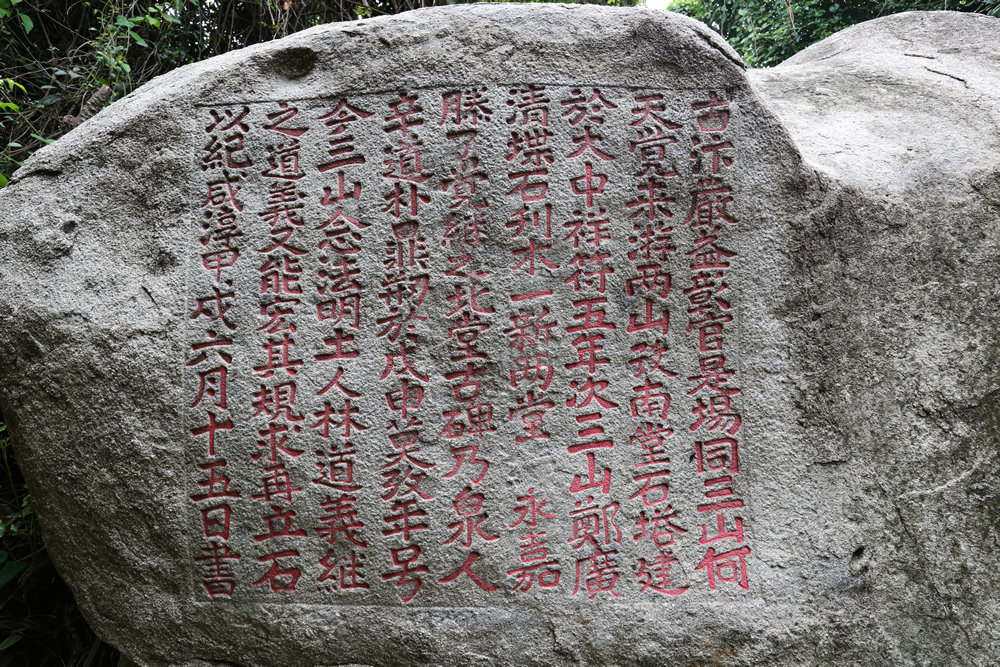 古汴嚴益彰官是場同三山何
天覺来游两山攷南堂石塔建
於大中祥符五年次三山鄭廣
清堞石刊木一新两堂 永嘉
滕了覺継之北堂古碑乃泉人
辛道朴鼎剏於戊申莫攷年号
今三山念法明土人林道義継
之道義又能宏其規求再立石
以紀咸淳甲戌六月十五日書